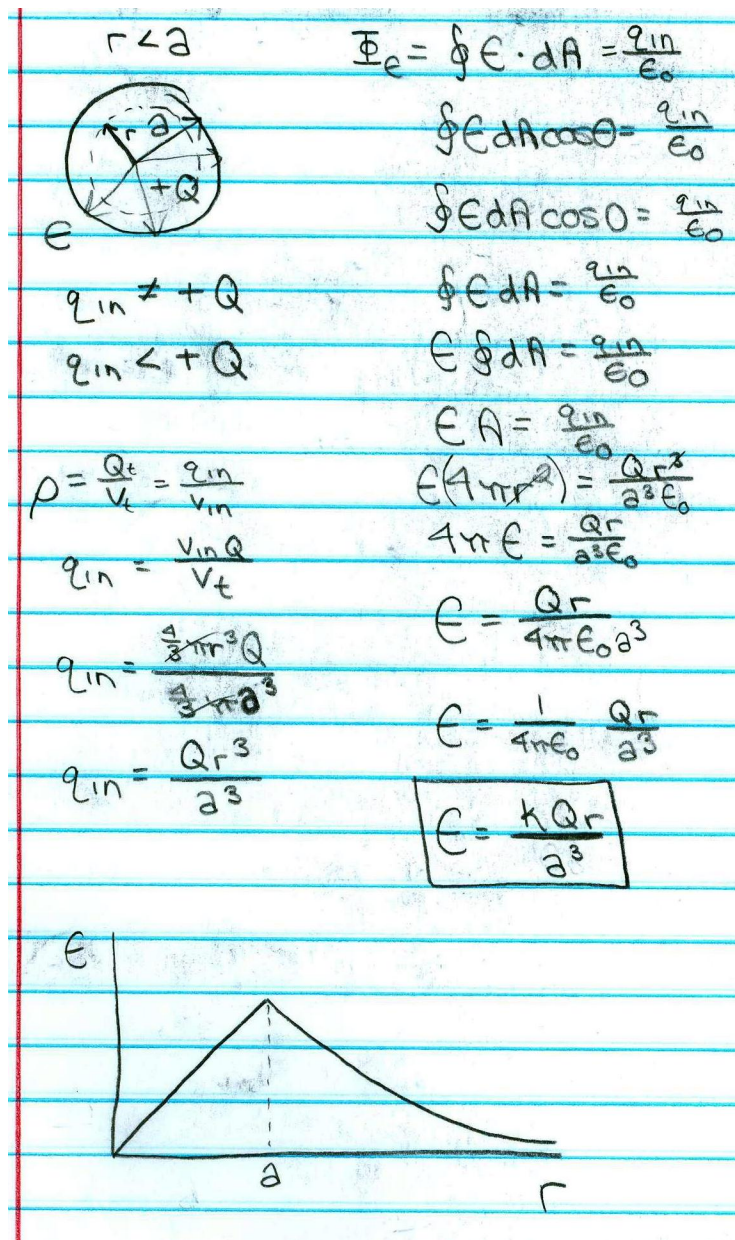 r < a
r a
+Q
E
q_in ≠ +Q
q_in < +Q
ρ = Q_t/V_t = q_in/V_in
q_in = V_in Q/V_t
q_in = 4/3 π r³ Q / 4/3 π a³
q_in = Q r³/a³
Φ_E = ∮ E · dA = q_in/ε₀
∮ E dA cos θ = q_in/ε₀
∮ E dA cos 0 = q_in/ε₀
∮ E dA = q_in/ε₀
E ∮ dA = q_in/ε₀
E A = q_in/ε₀
E(4πr²) = Q r³/a³ ε₀
4π E = Q r/a³ ε₀
E = Q r/4π ε₀ a³
E = 1/4π ε₀ Q r/a³
E = k Q r/a³
E
a
r